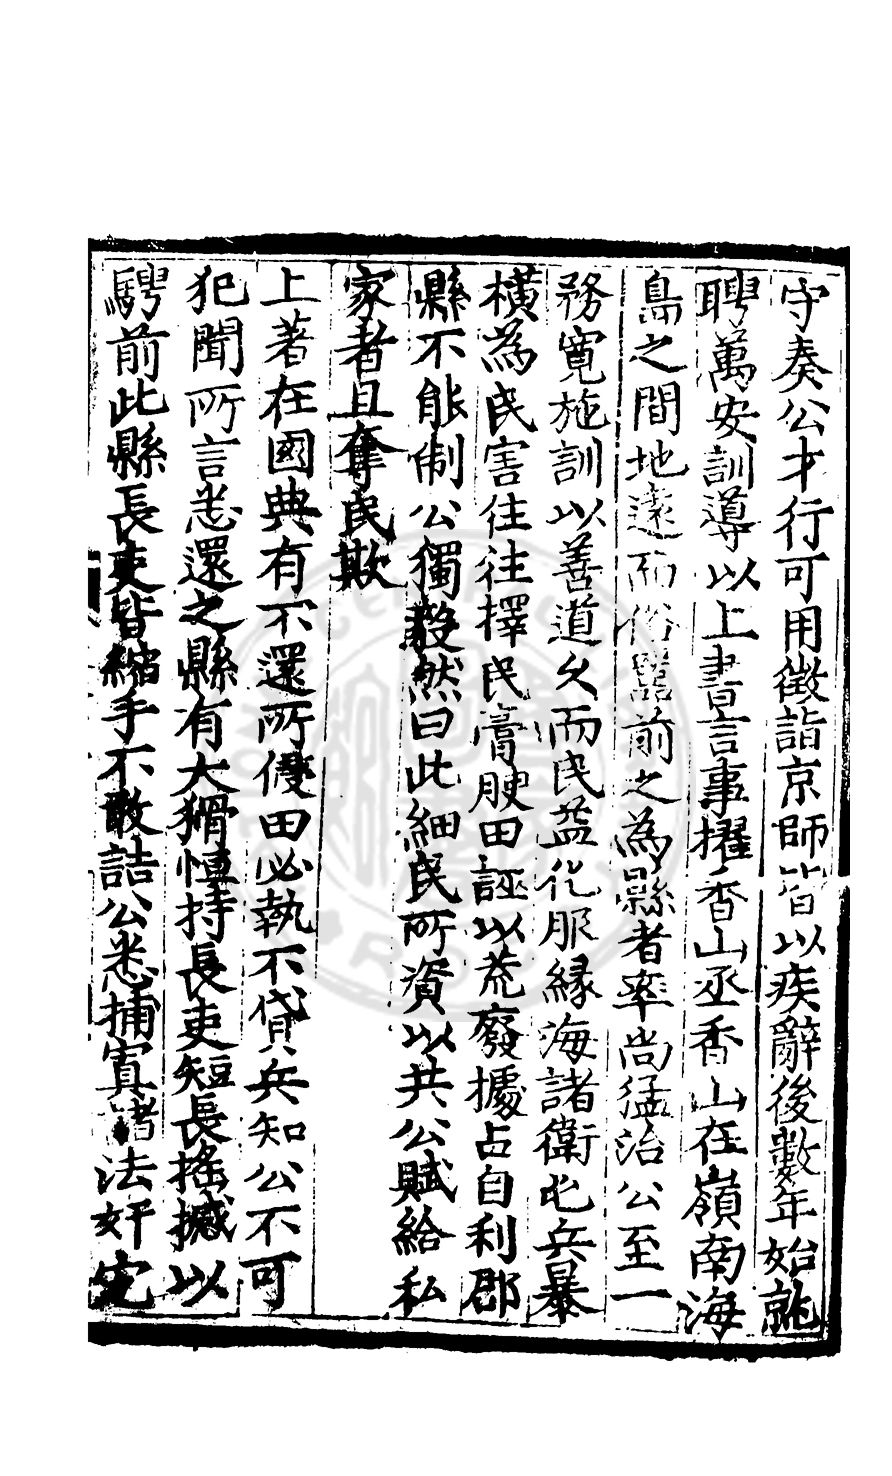 守奏公才行可用徵詣京師皆以疾辭後數年始就
聘萬安訓導以上書言事擢香山丞香山在嶺南海
島之間地遠而俗嚚前之為縣者率尚猛治公至一
務寬施訓以善道久而民益化服縁海諸衛屯兵暴
橫為民害往往擇民膏腴田誣以荒廢據占自利郡
縣不能制公獨毅然曰此細民所資以共公賦給私
家者且奪民欺
上著在國典有不還所侵田必執不貸兵知公不可
犯聞所言悉還之縣有大猾恒持長吏短長搖撼以
騁前此縣長吏皆縮手不敢詰公悉捕寘諸法奸宄